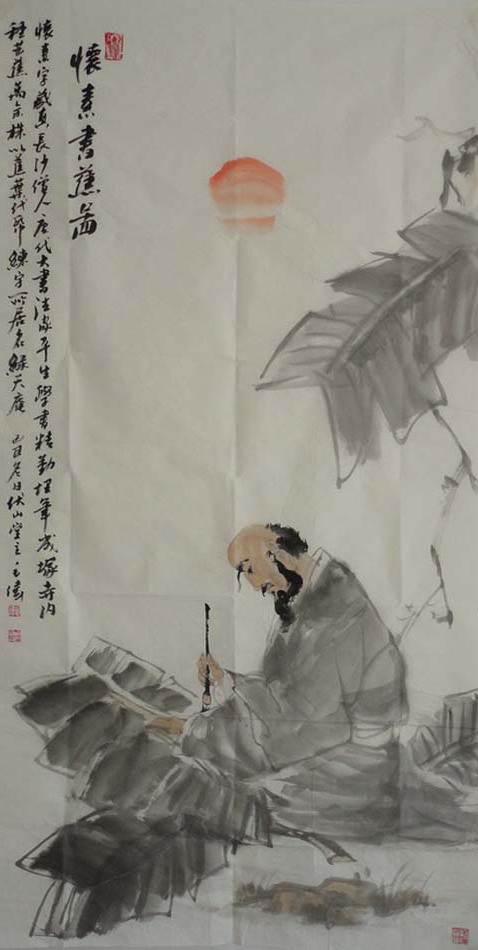 懷素書蕉圖
懷素字藏真長沙僧人唐代大書法家平生學書精勤埋筆成塚寺內
種芭蕉萬余株以蕉葉代紙練字所居名綠天庵 冬日伏山堂主王濤